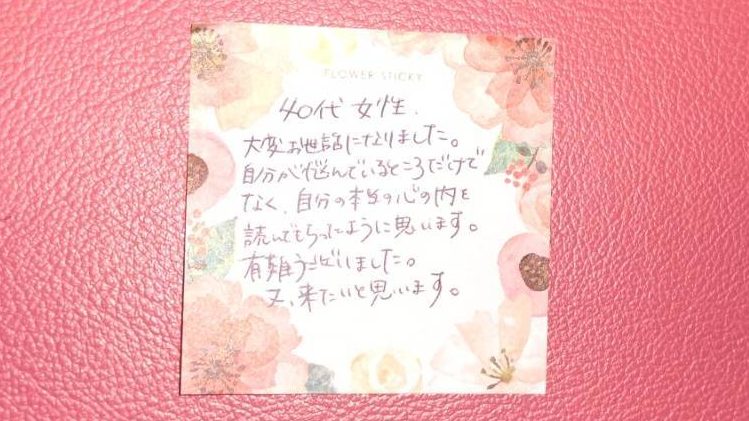 FLOWER STICKY
40代 女性.
大変お世話になりました。
自分が悩んでいるところだけで
なく、自分の本当の心の内を
読んでもらったように思います。
有難うございました。
又、来たいと思います。